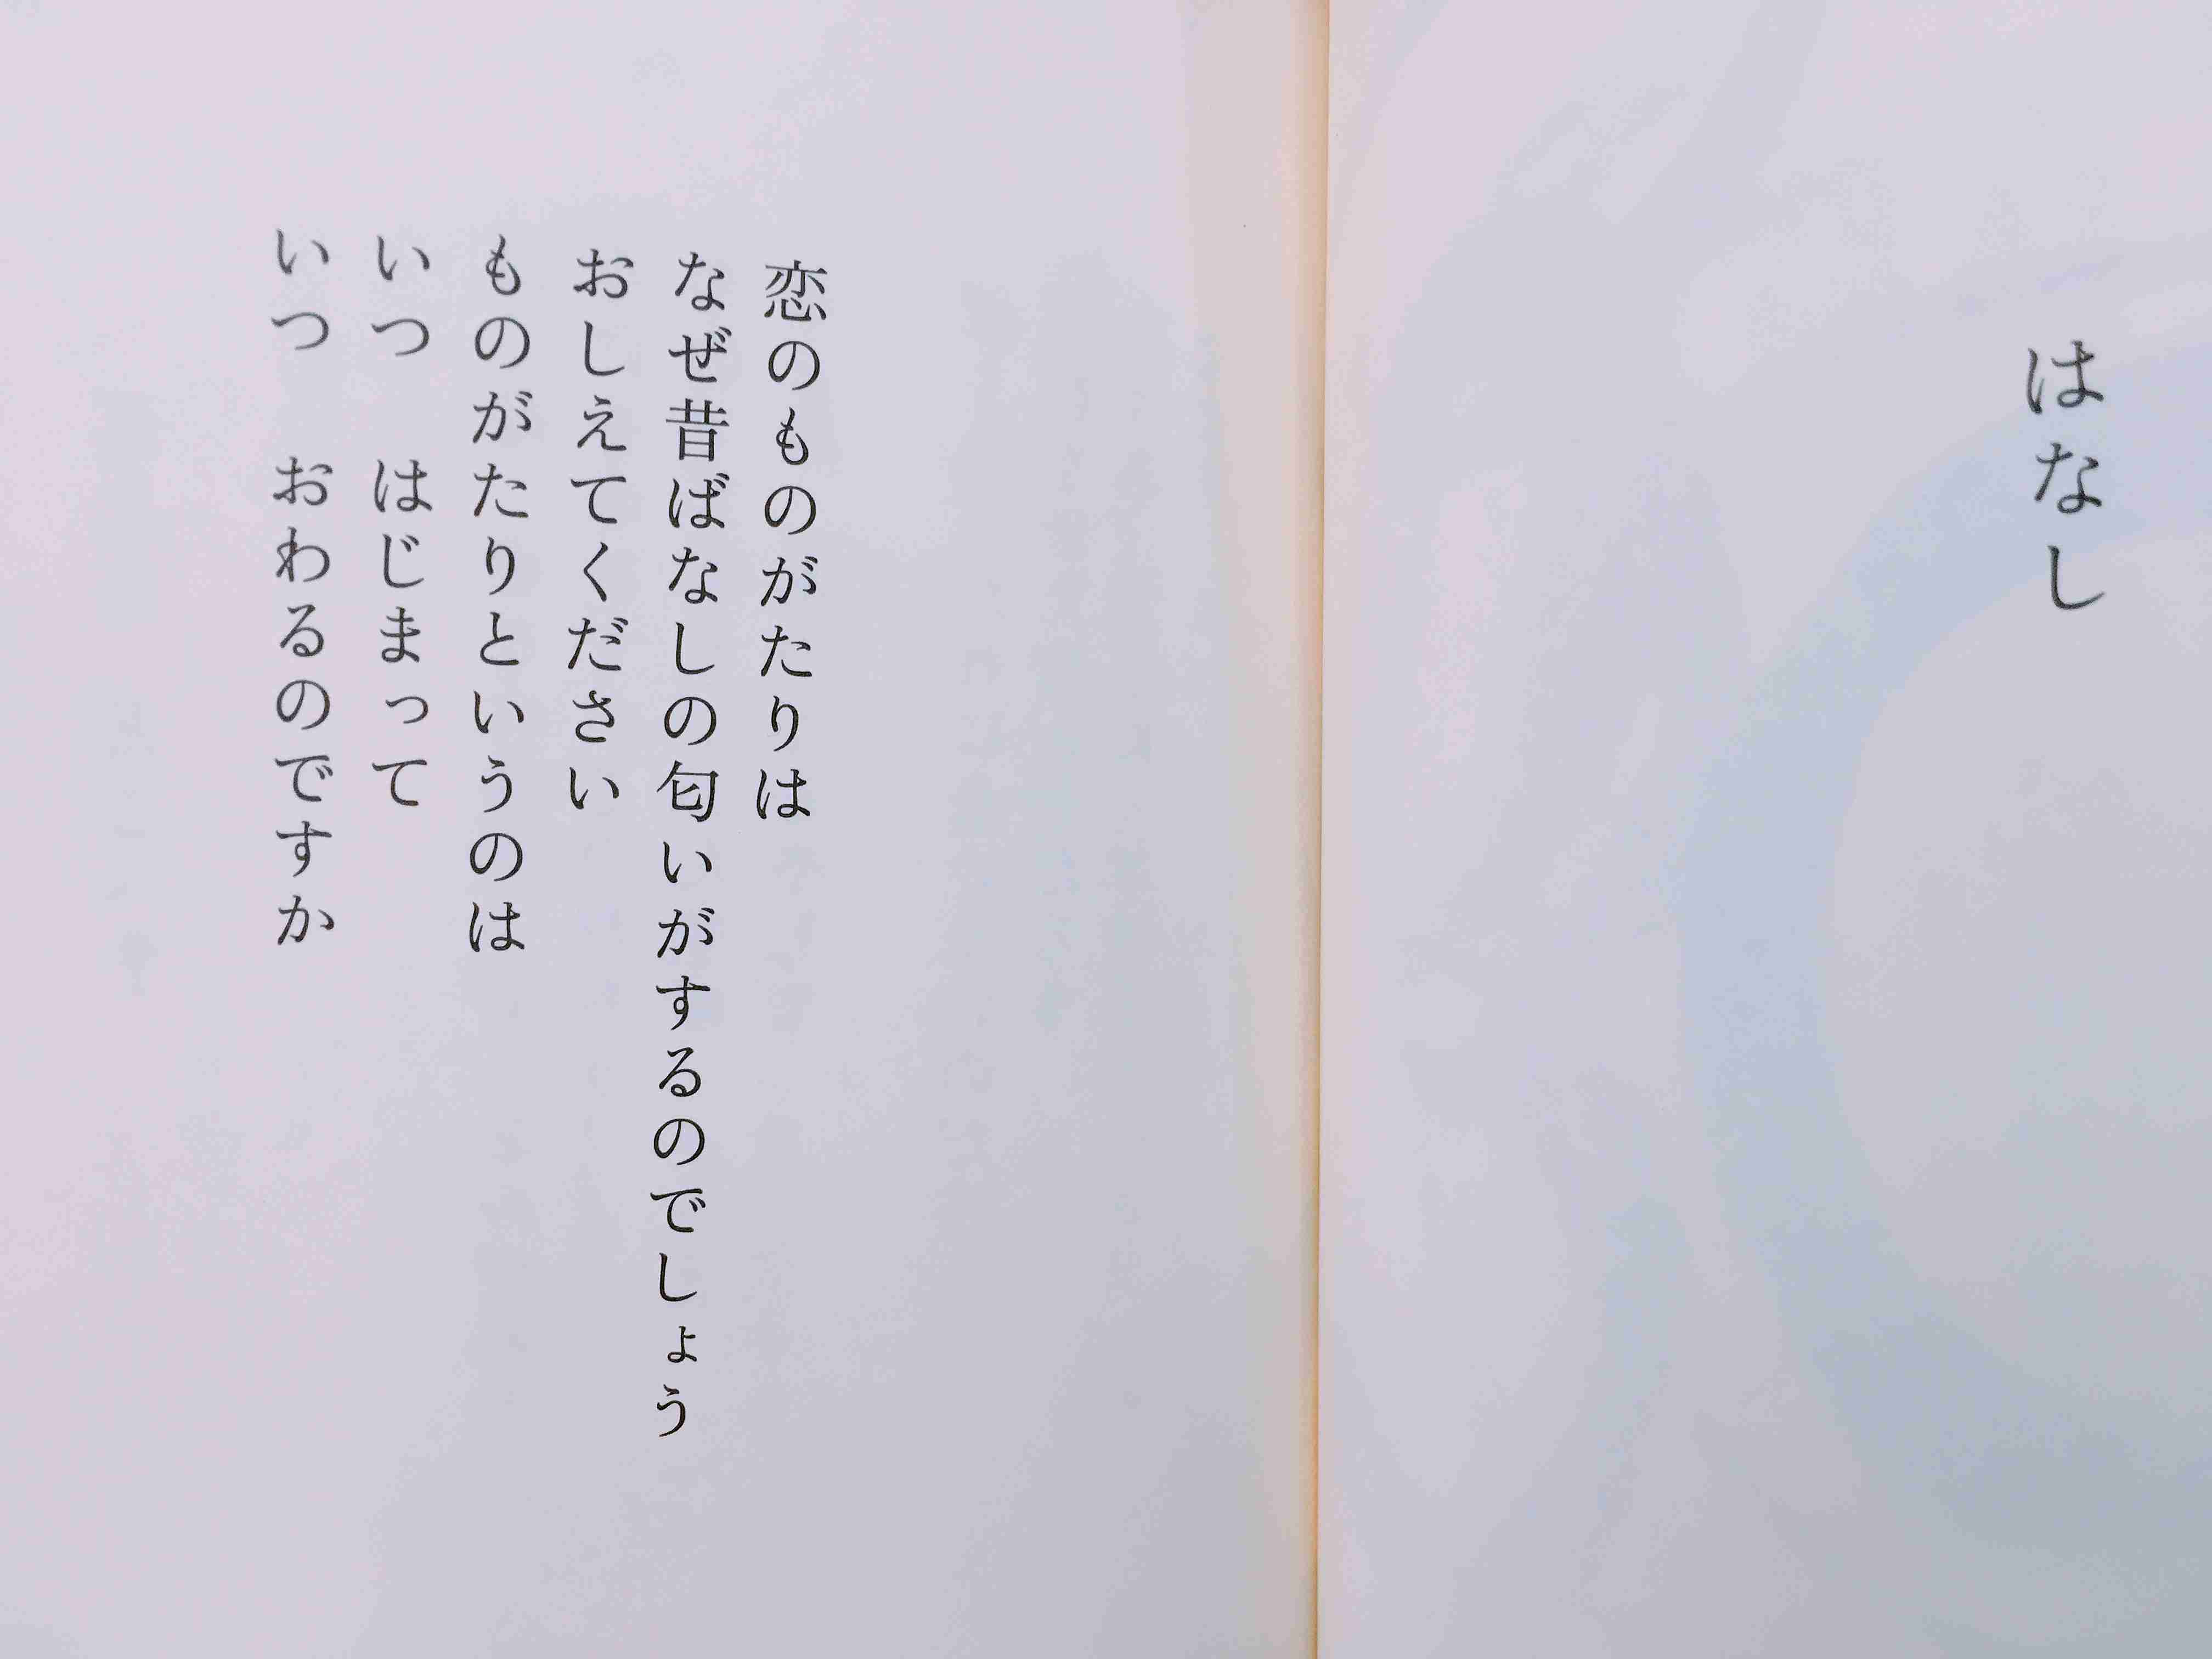 はなし
恋のものがたりは
なぜ昔ばなしの匂いがするのでしょう
おしえてください
ものがたりというのは
いつ　はじまって
いつ　おわるのですか